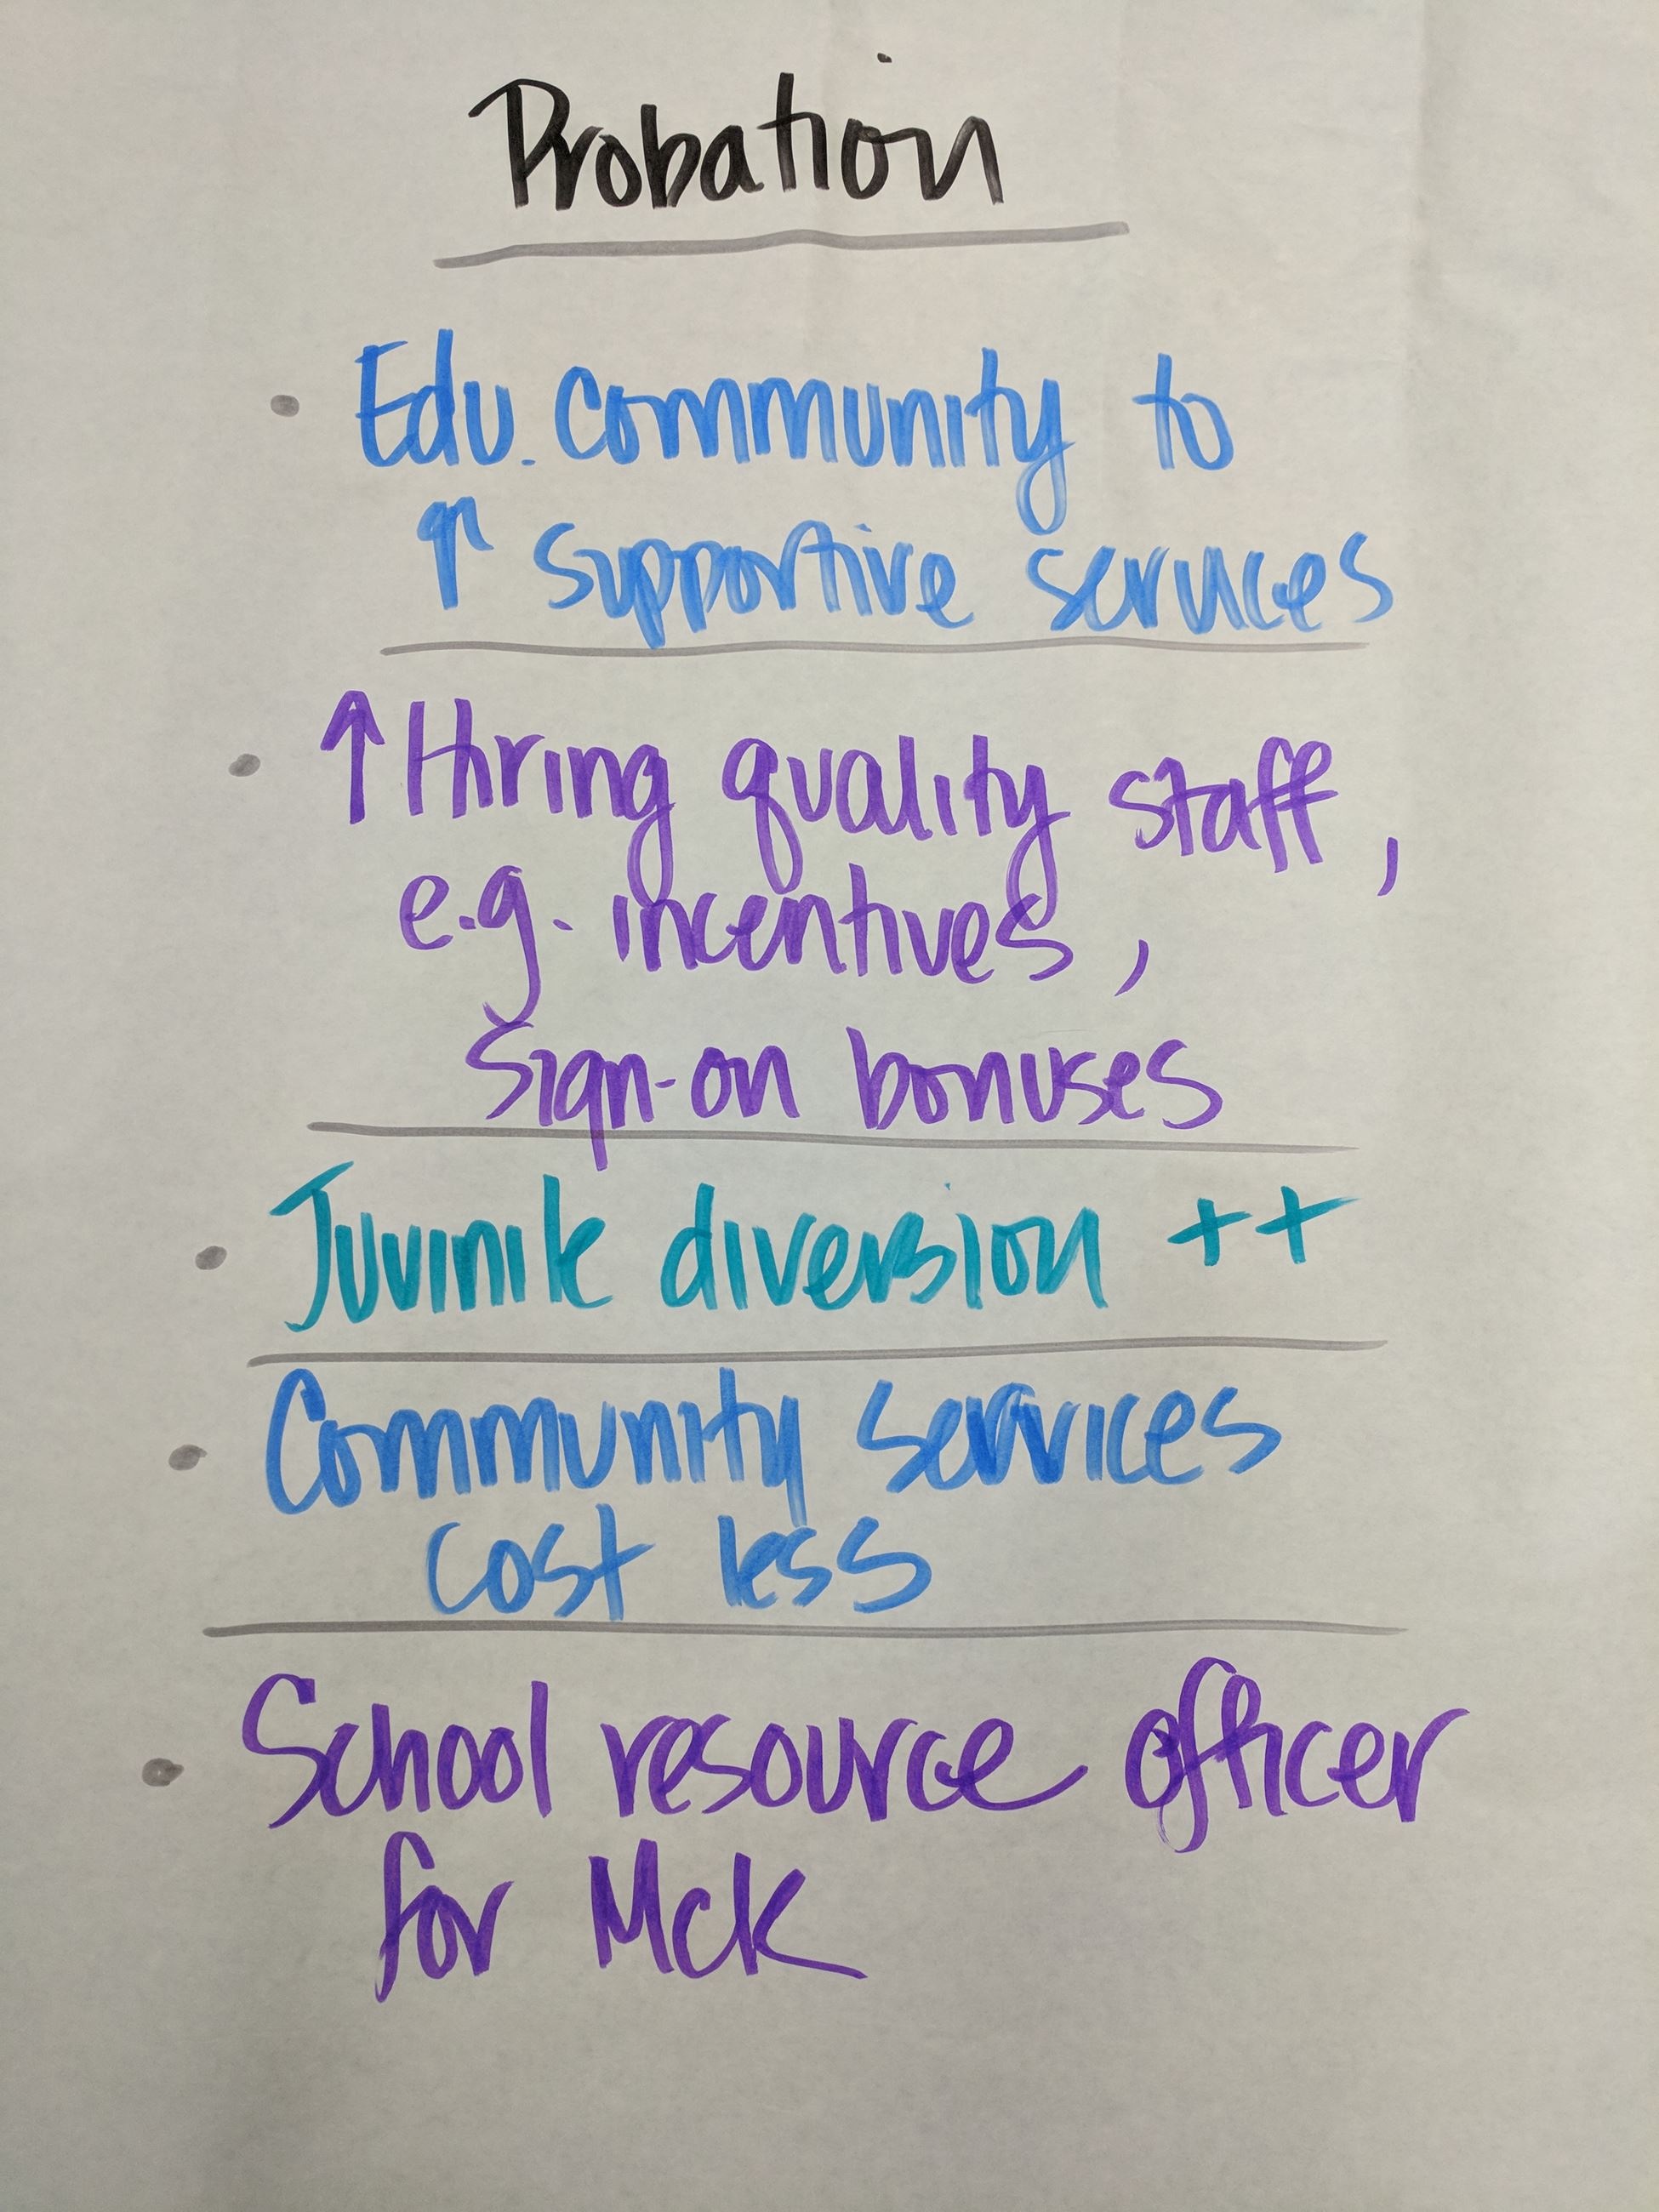 Probation
• Edu. community to
↑ supportive services
• ↑ Hiring quality staff,
e.g. incentives,
sign-on bonuses
• Juvinile diversion ++
• Community services
cost less
• School resource officer
for McK